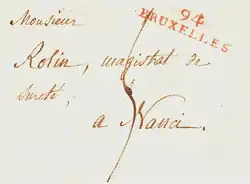 Monsieur
94
BRUXELLES
Rolin, magistrat de
sureté,
a Nanci.